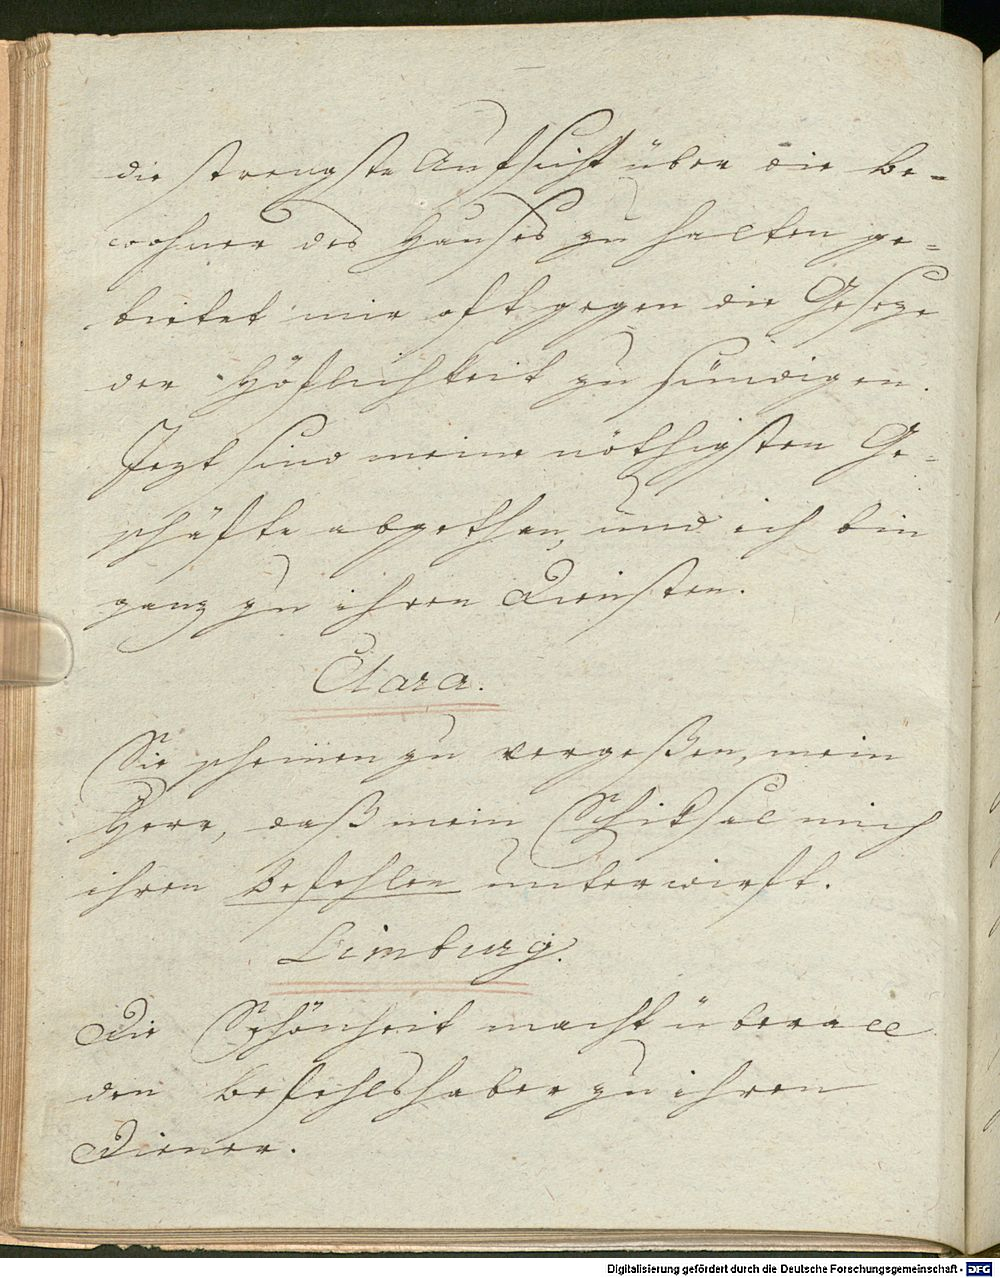 die strengste Aufsicht über die Be-
wohner des Hauses zu halten ge-
bietet mir oft gegen die Geseze
der Höflichkeit zu sündigen.
Jezt sind meine nöthigsten Ge-
schäfte abgethan, und ich bin
ganz zu ihren Diensten.
Clara.
Sie scheinen zu vergeßen, mein
Herr, daß mein Schiksal mich
ihren Befehlen unterwirft.
Limburg.
Die Schönheit macht überall
den Befehlshaber zu ihren
Diener.
Digitalisierung gefördert durch die Deutsche Forschungsgemeinschaft - DFG